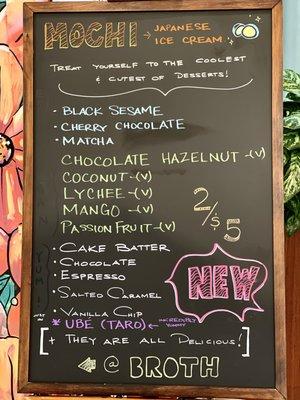 MOCHI → JAPANESE
ICE CREAM
TREAT YOURSELF TO THE COOLEST
& CUTEST OF DESSERTS!
· BLACK SESAME
· CHERRY CHOCOLATE
· MATCHA
CHOCOLATE HAZELNUT -(V)
COCONUT -(V)
LYCHEE -(V)
MANGO -(V)
PASSION FRUIT -(V)
2/$5
· CAKE BATTER
· CHOCOLATE
· ESPRESSO
· SALTED CARAMEL
· VANILLA CHIP
NEW
* UBE (TARO) ← INCREDIBLY YUMMY
[+ THEY ARE ALL DELICIOUS!]
@ BROTH